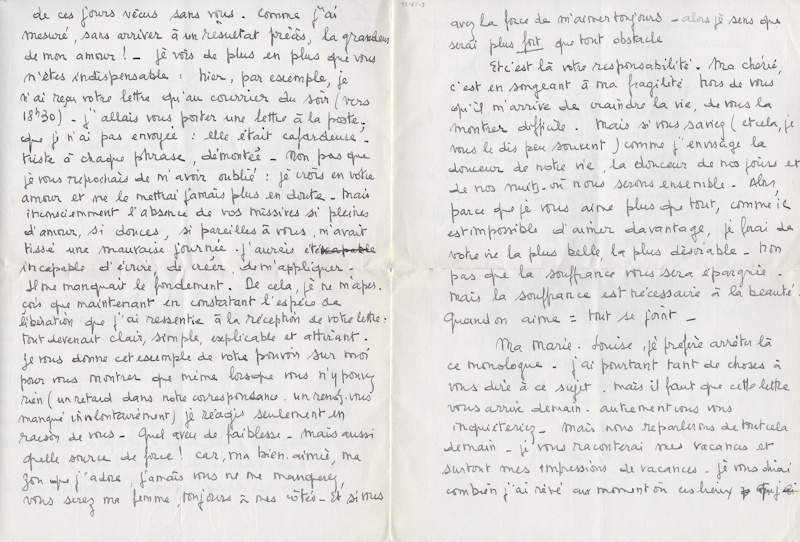 de ces jours vécus sans vous. Comme j'ai
mesuré, sans arriver à un résultat précis, la grandeur
de mon amour ! - je vois de plus en plus que vous
m'êtes indispensable : hier, par exemple, je
n'ai reçu votre lettre qu'au courrier du soir (vers
18h30) - j'allais vous porter une lettre à la poste.
que je n'ai pas envoyée : elle était cafardeuse,
triste à chaque phrase, démontée - Non pas que
je vous reprochais de m'avoir oublié : je crois en votre
amour et ne le mettrai jamais plus en doute. Mais
inconsciemment l'absence de vos missives si pleines
d'amour, si douces, si pareilles à vous, m'avait
tissé une mauvaise journée. j'aurais été
incapable d'écrire, de créer, de m'appliquer.
Il me manquait le fondement. De cela, je ne m'aper.
çois que maintenant en constatant l'espèce de
libération que j'ai ressentie à la réception de votre lettre :
tout devenait clair, simple, explicable et attirant.
Je vous donne cet exemple de votre pouvoir sur moi
pour vous montrer que même lorsque vous n'y pouvez
rien (un retard dans notre correspondance. un rendez-vous
manqué involontairement) je réagis seulement en
raison de vous - Quel aveu de faiblesse - mais aussi
quelle source de force ! car, ma bien-aimée, ma
Zon que j'adore, jamais vous ne me manquerez,
vous serez ma femme, toujours à mes côtés - Et si vous
avez la force de m'aimer toujours - alors je sens que
serai plus fort que tout obstacle
Et c'est là votre responsabilité. Ma chérie,
c'est en songeant à ma fragilité hors de vous
qu'il m'arrive de craindre la vie, de vous la
montrer difficile. Mais si vous saviez (et cela, je
vous le dis peu souvent) comme j'envisage la
douceur de notre vie, la douceur de nos jours et
de nos nuits où nous serons ensemble - Alors,
parce que je vous aime plus que tout, comme il
est impossible d'aimer davantage, je ferai de
votre vie la plus belle, la plus désirable - Non
pas que la souffrance vous sera épargnée -
Mais la souffrance est nécessaire à la beauté.
Quand on aime = tout se joint -
Ma Marie-Louise, je préfère arrêter là
ce monologue - j'ai pourtant tant de choses à
vous dire à ce sujet. mais il faut que cette lettre
vous arrive demain. autrement vous vous
inquiéteriez - Mais nous reparlerons de tout cela
demain - je vous raconterai mes vacances et
surtout mes impressions de vacances - je vous dirai
combien j'ai rêvé au moment où ces lieux